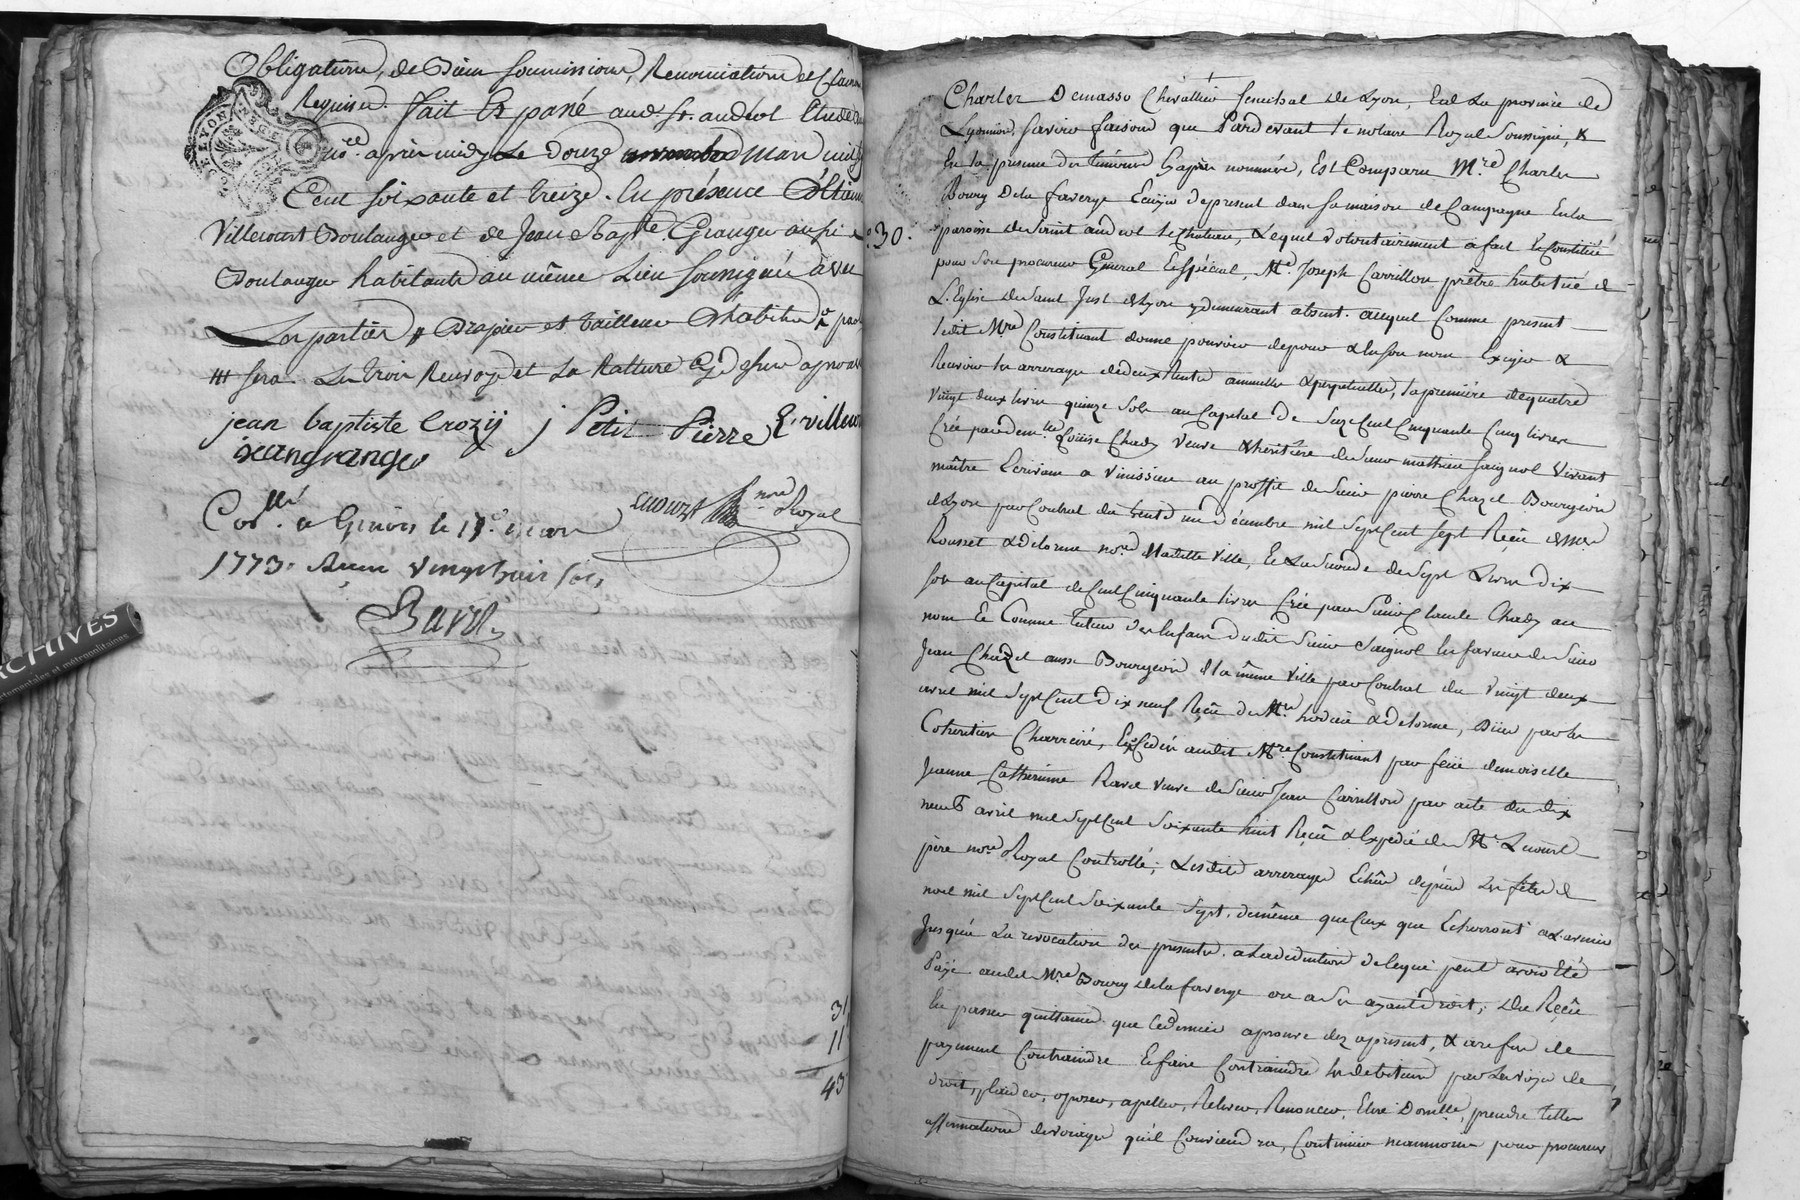 Obligations, de Biens soumissions, Renonciations et Clauses
Requises. fait Et passé aud. St. andeol Etude du
no.re apres midy Le Douze novembre Mars mil
Cent soixante et treize. En présence d'Etienne
Villecourt Boulanger et de Jean Bapte. Granger aussi
Boulanger habitants au même Lieu soussignés avec
Les parties # Drapier et tailleur d'habits
sera. Les trois Renvoy et La Ratture Cy dessus aprouvé
jean baptiste Crozy j Petit Pierre E. villecour
jean granger
Lhouzt nore Royal
Colle. a Givors le 15e. mars
1773. Reçu vingt huit sols
Bavet
ARCHIVES
départementales et métropolitaines
31
11
43
LYON
30.
Charles Demasso Chevallier senechal de Lyon, Et de La province de
Lyonnois, savoir faisons que Pardevant le notaire Royal soussigné, &
En la presence des temoins Ci après nommés, Est Comparu M.re Charles
Boury De la faverge Ecuyer de present dans sa maison de Campagne En la
paroisse de saint andeol le chateau, Lequel volontairement a fait Et Constitué
pour son procureur General Et spécial, Me. Joseph Carrillon prêtre habitué de
L'Eglise de saint Just de Lyon y demeurant absent. auquel Comme present
ledit Mre Constituant donne pouvoir de pour & En son nom Exiger &
Recevoir les arrerages de deux Rentes annuelles & perpetuelles, la premiére de quatre
vingt deux livres quinze sols au Capital de seize Cent Cinquante Cinq livres
Créé par demlle. Louise Chady veuve & heritiére de sieur mathieu saignol Vivant
maître Ecrivain a Vinissieu au proffit de sieur pierre Chazel Bourgeois
de Lyon par Contrat du trente un decembre mil sept Cent sept Reçu de Mes
Rousset & Delorme nores de ladite Ville, Et La seconde de sept Livres dix
sols au Capital de Cent Cinquante livres Créé par sieur Claude Chady au
nom Et Comme tuteur des Enfans dudit sieur saignol En faveur de sieur
Jean Chazel aussi Bourgeois de la même ville par Contrat du vingt deux
avril mil sept Cent dix neuf Reçu de Mes. hodieu & Delorme, Dües par les
Coheritiers Charriére, Et Cedés audit Mre Constituant par feüe demoiselle
Jeanne Catherinne Ravel veuve de sieur Jean Carrillon par acte du dix
neuf avril mil sept Cent soixante huit Reçu & Expedié de Me. Lhouzt
pere nore Royal Controllé; Lesdits arrerages Echus depuis Les fetes de
noel mil sept Cent soixante sept, de même que Ceux que Echerront a L'avenir
Jusqu'a La revocation des presentes. a La deduction de Ce qui peut avoir Eté
Payé audit Mre Boury de la faverge ou a Ses ayant droit; Du Reçu
En passer quittances que Ce dernier aprouve dez apresent, & a refus de
payement Contraindre Et faire Contraindre les debiteurs par Les voyes de
droit, plaider, oposer, apeller, Relever, Renoncer, Elire Domlle, prendre lettres
affirmations de voyages qu'il Conviendra, Continuer neanmoins pour procureur